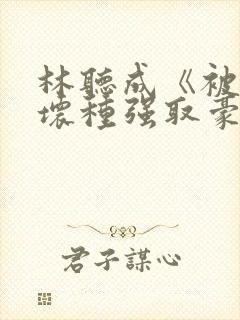 林聽成《被
壞種强取豪
君子謀心